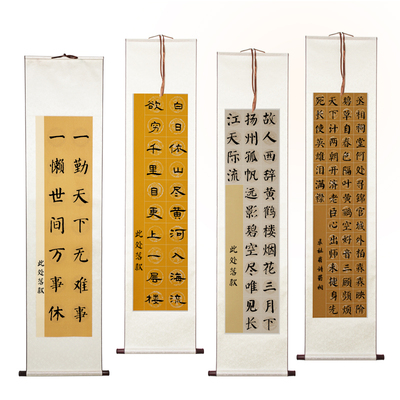 一勤天下无难事
一懒世间万事休
此处落款
白日依山尽黄河入海流
欲穷千里目更上一层楼
此处落款
故人西辞黄鹤楼烟花三月下
扬州孤帆远影碧空尽唯见长
江天际流
此处落款
丞相祠堂何处寻锦官城外柏森森映阶
碧草自春色隔叶黄鹂空好音三顾频烦
天下计两朝开济老臣心出师未捷身先
死长使英雄泪满襟
录杜甫诗蜀相